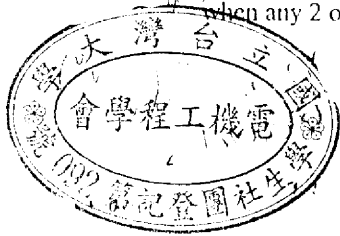 when any 2 o
國立台灣大學
電機工程學會
學生社團登記第092號